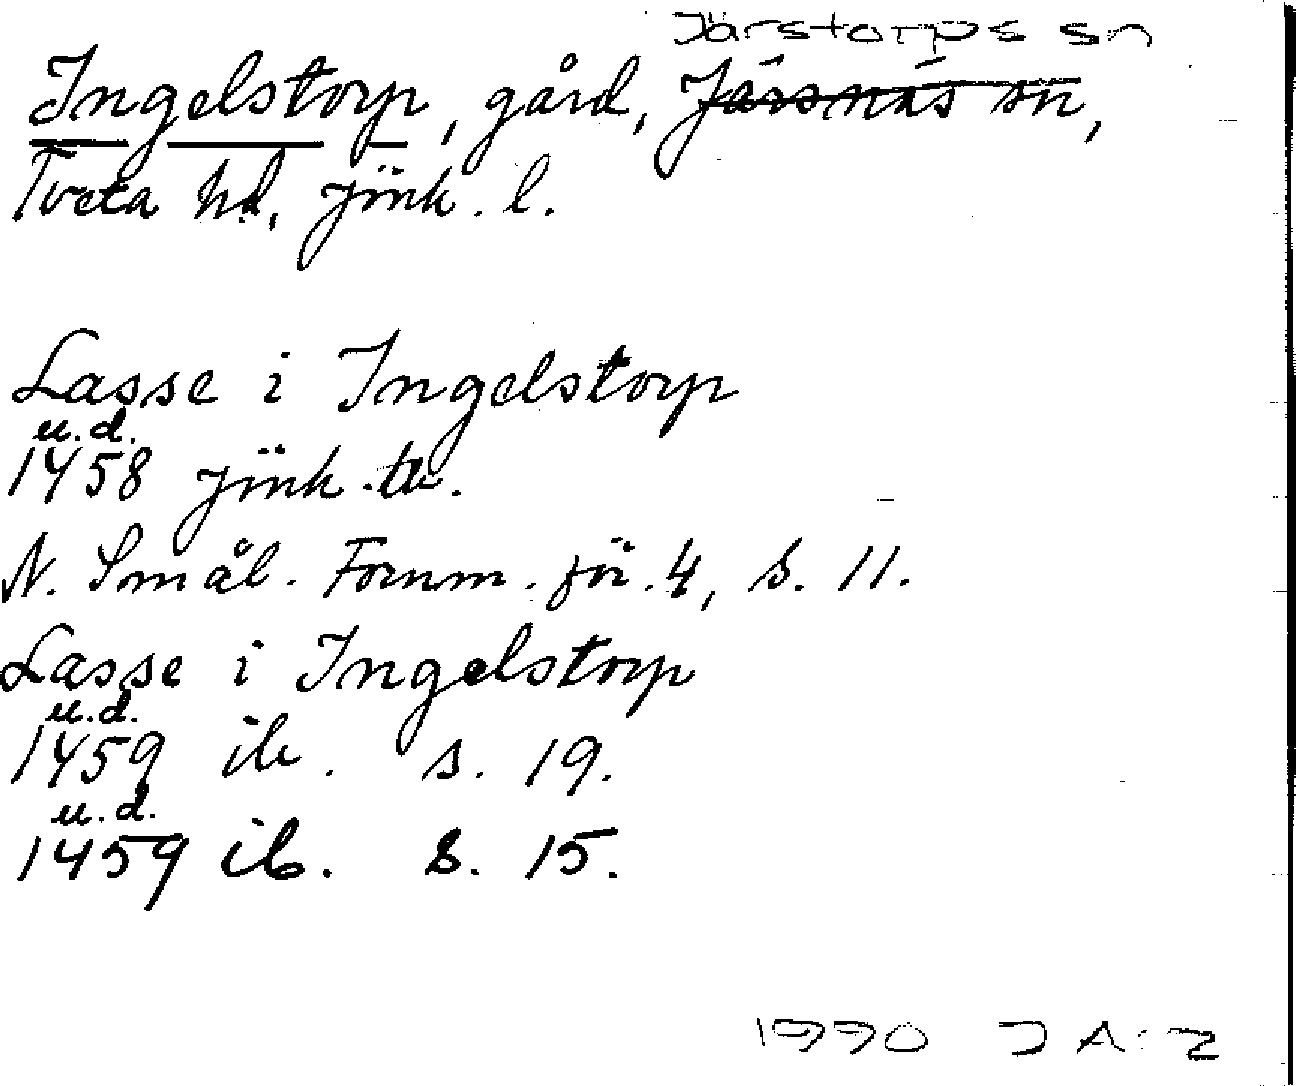 Järstorps sn
Ingelstorp, gård, Järsnäs sn,
Tveta hd, Jönk. l.
Lasse i Ingelstorp
u.d.
1458 Jönk. tb.
N. Smål. Fornm. för. 4, s. 11.
Lasse i Ingelstorp
u.d.
1459 ib. s. 19.
u.d.
1459 ib. s. 15.
1990 JA:2